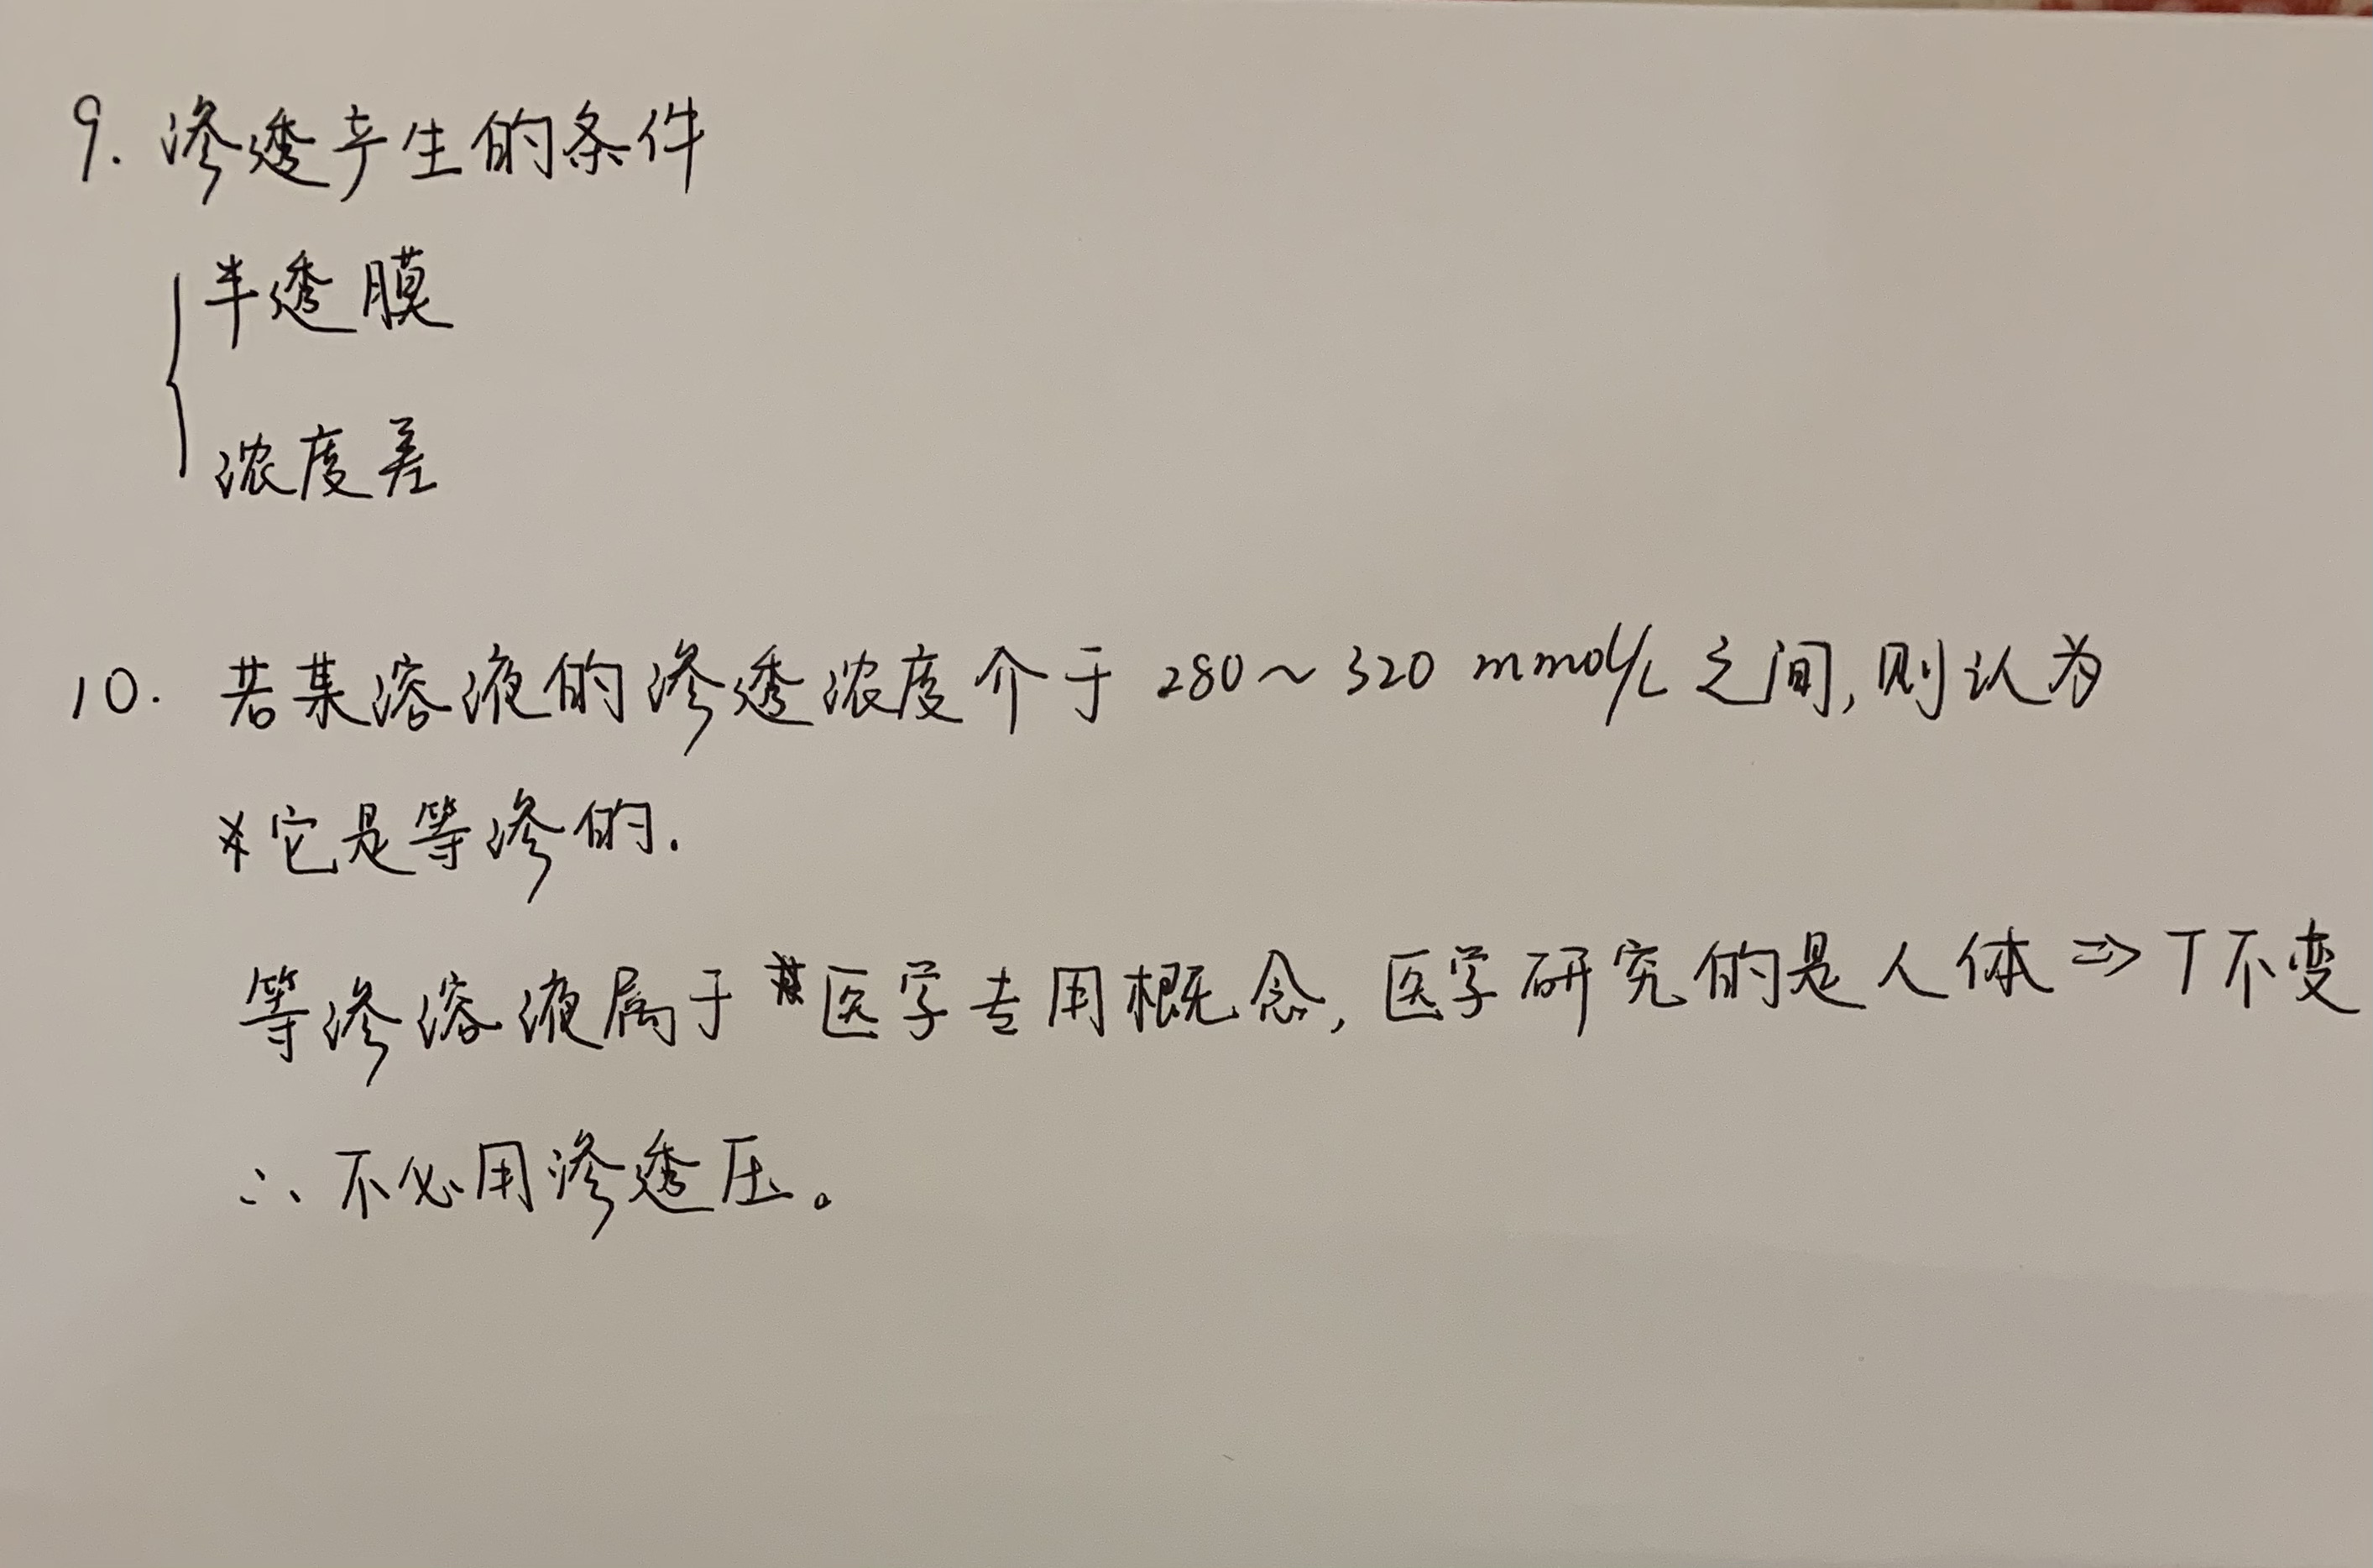 9. 渗透产生的条件
半透膜
浓度差
10. 若某溶液的渗透浓度介于 280~320 mmol/L 之间,则认为
它是等渗的.
等渗溶液属于医学专用概念, 医学研究的是人体 ⇒ T不变
∴ 不必用渗透压。